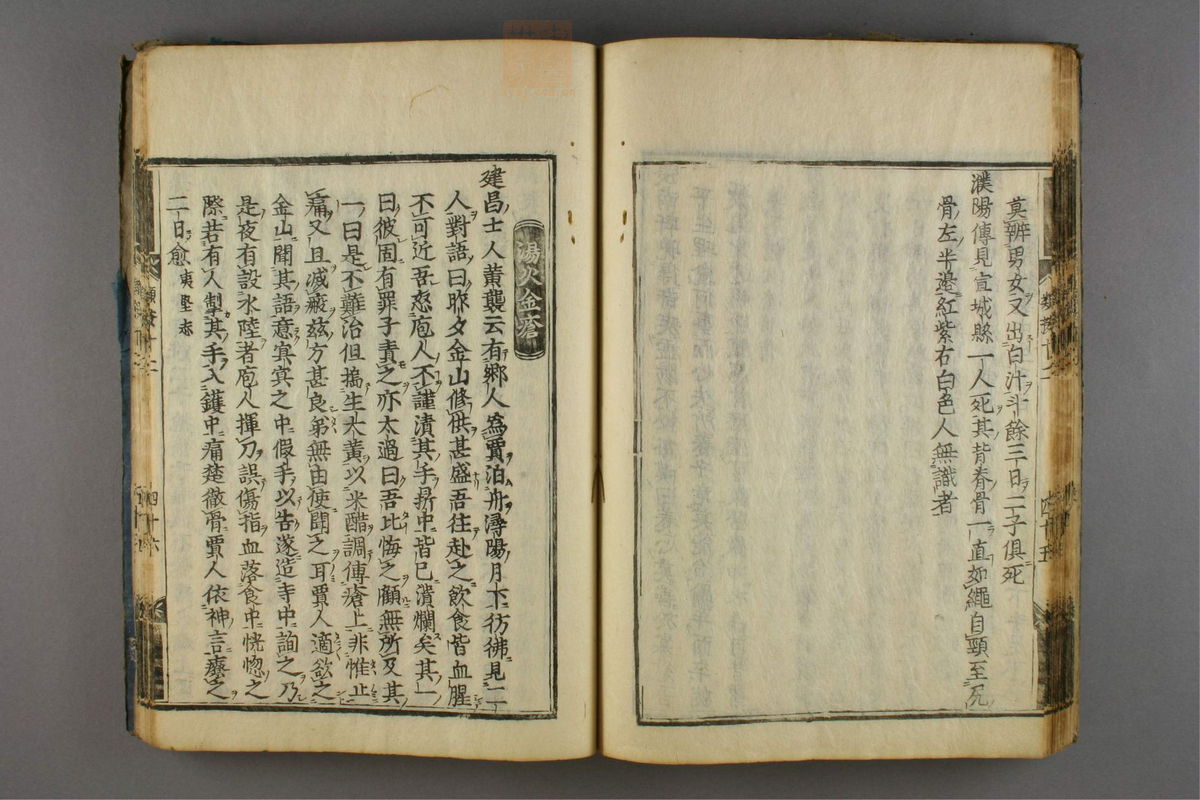 莫辨男女又出白汁斗餘三日二子俱死
濮陽傳見宣城縣一人死其背脊骨一直如繩自頸至尻
骨左半邊紅紫右白色人無識者
四十五
湯火金瘡
建昌士人黄襲云有鄉人爲賈泊舟潯陽月下彷彿見二
人對語曰昨夕金山修供甚盛吾往赴之飲食皆血腥
不可近吾怒庖人不謹漬其手鼎中皆已潰爛矣其一
曰彼固有罪子責之亦太過曰吾比悔之顧無所及其
一曰是不難治但搗生大黄以米醋調傅瘡上非惟止
痛又且滅瘢茲方甚良第無由使聞之耳賈人適欲之
金山聞其語意冥冥之中假手以告遂造寺中詢之乃
是夜有設水陸者庖人揮刀誤傷指血落食中恍惚之
際若有人掣其手入鑊中痛楚徹骨賈人依神言療之
二日愈夷堅志
四十六